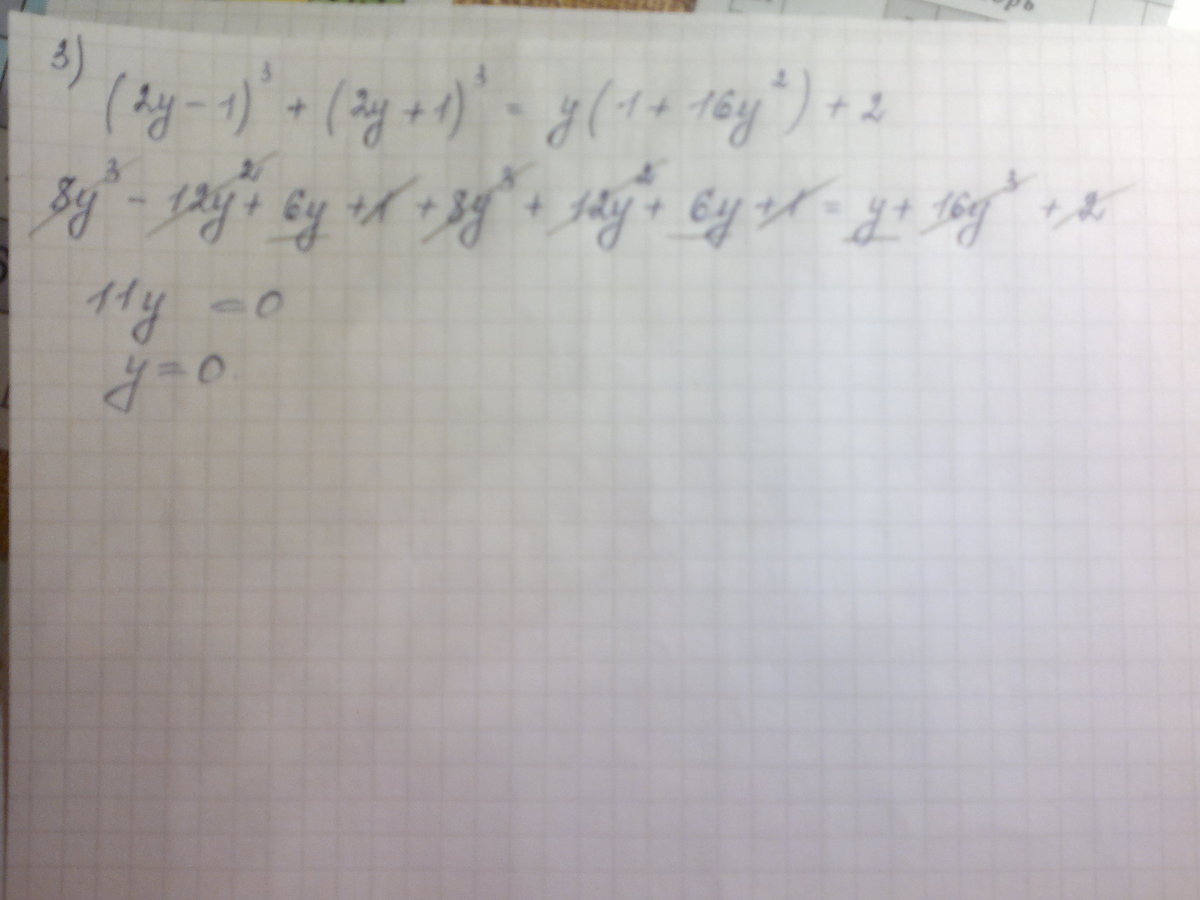 3)
(2y-1)³ + (2y+1)³ = y(1+16y²)+2
8y³ - 12y² + 6y + 1 + 8y³ + 12y² + 6y + 1 = y + 16y³ + 2
11y = 0
y = 0.